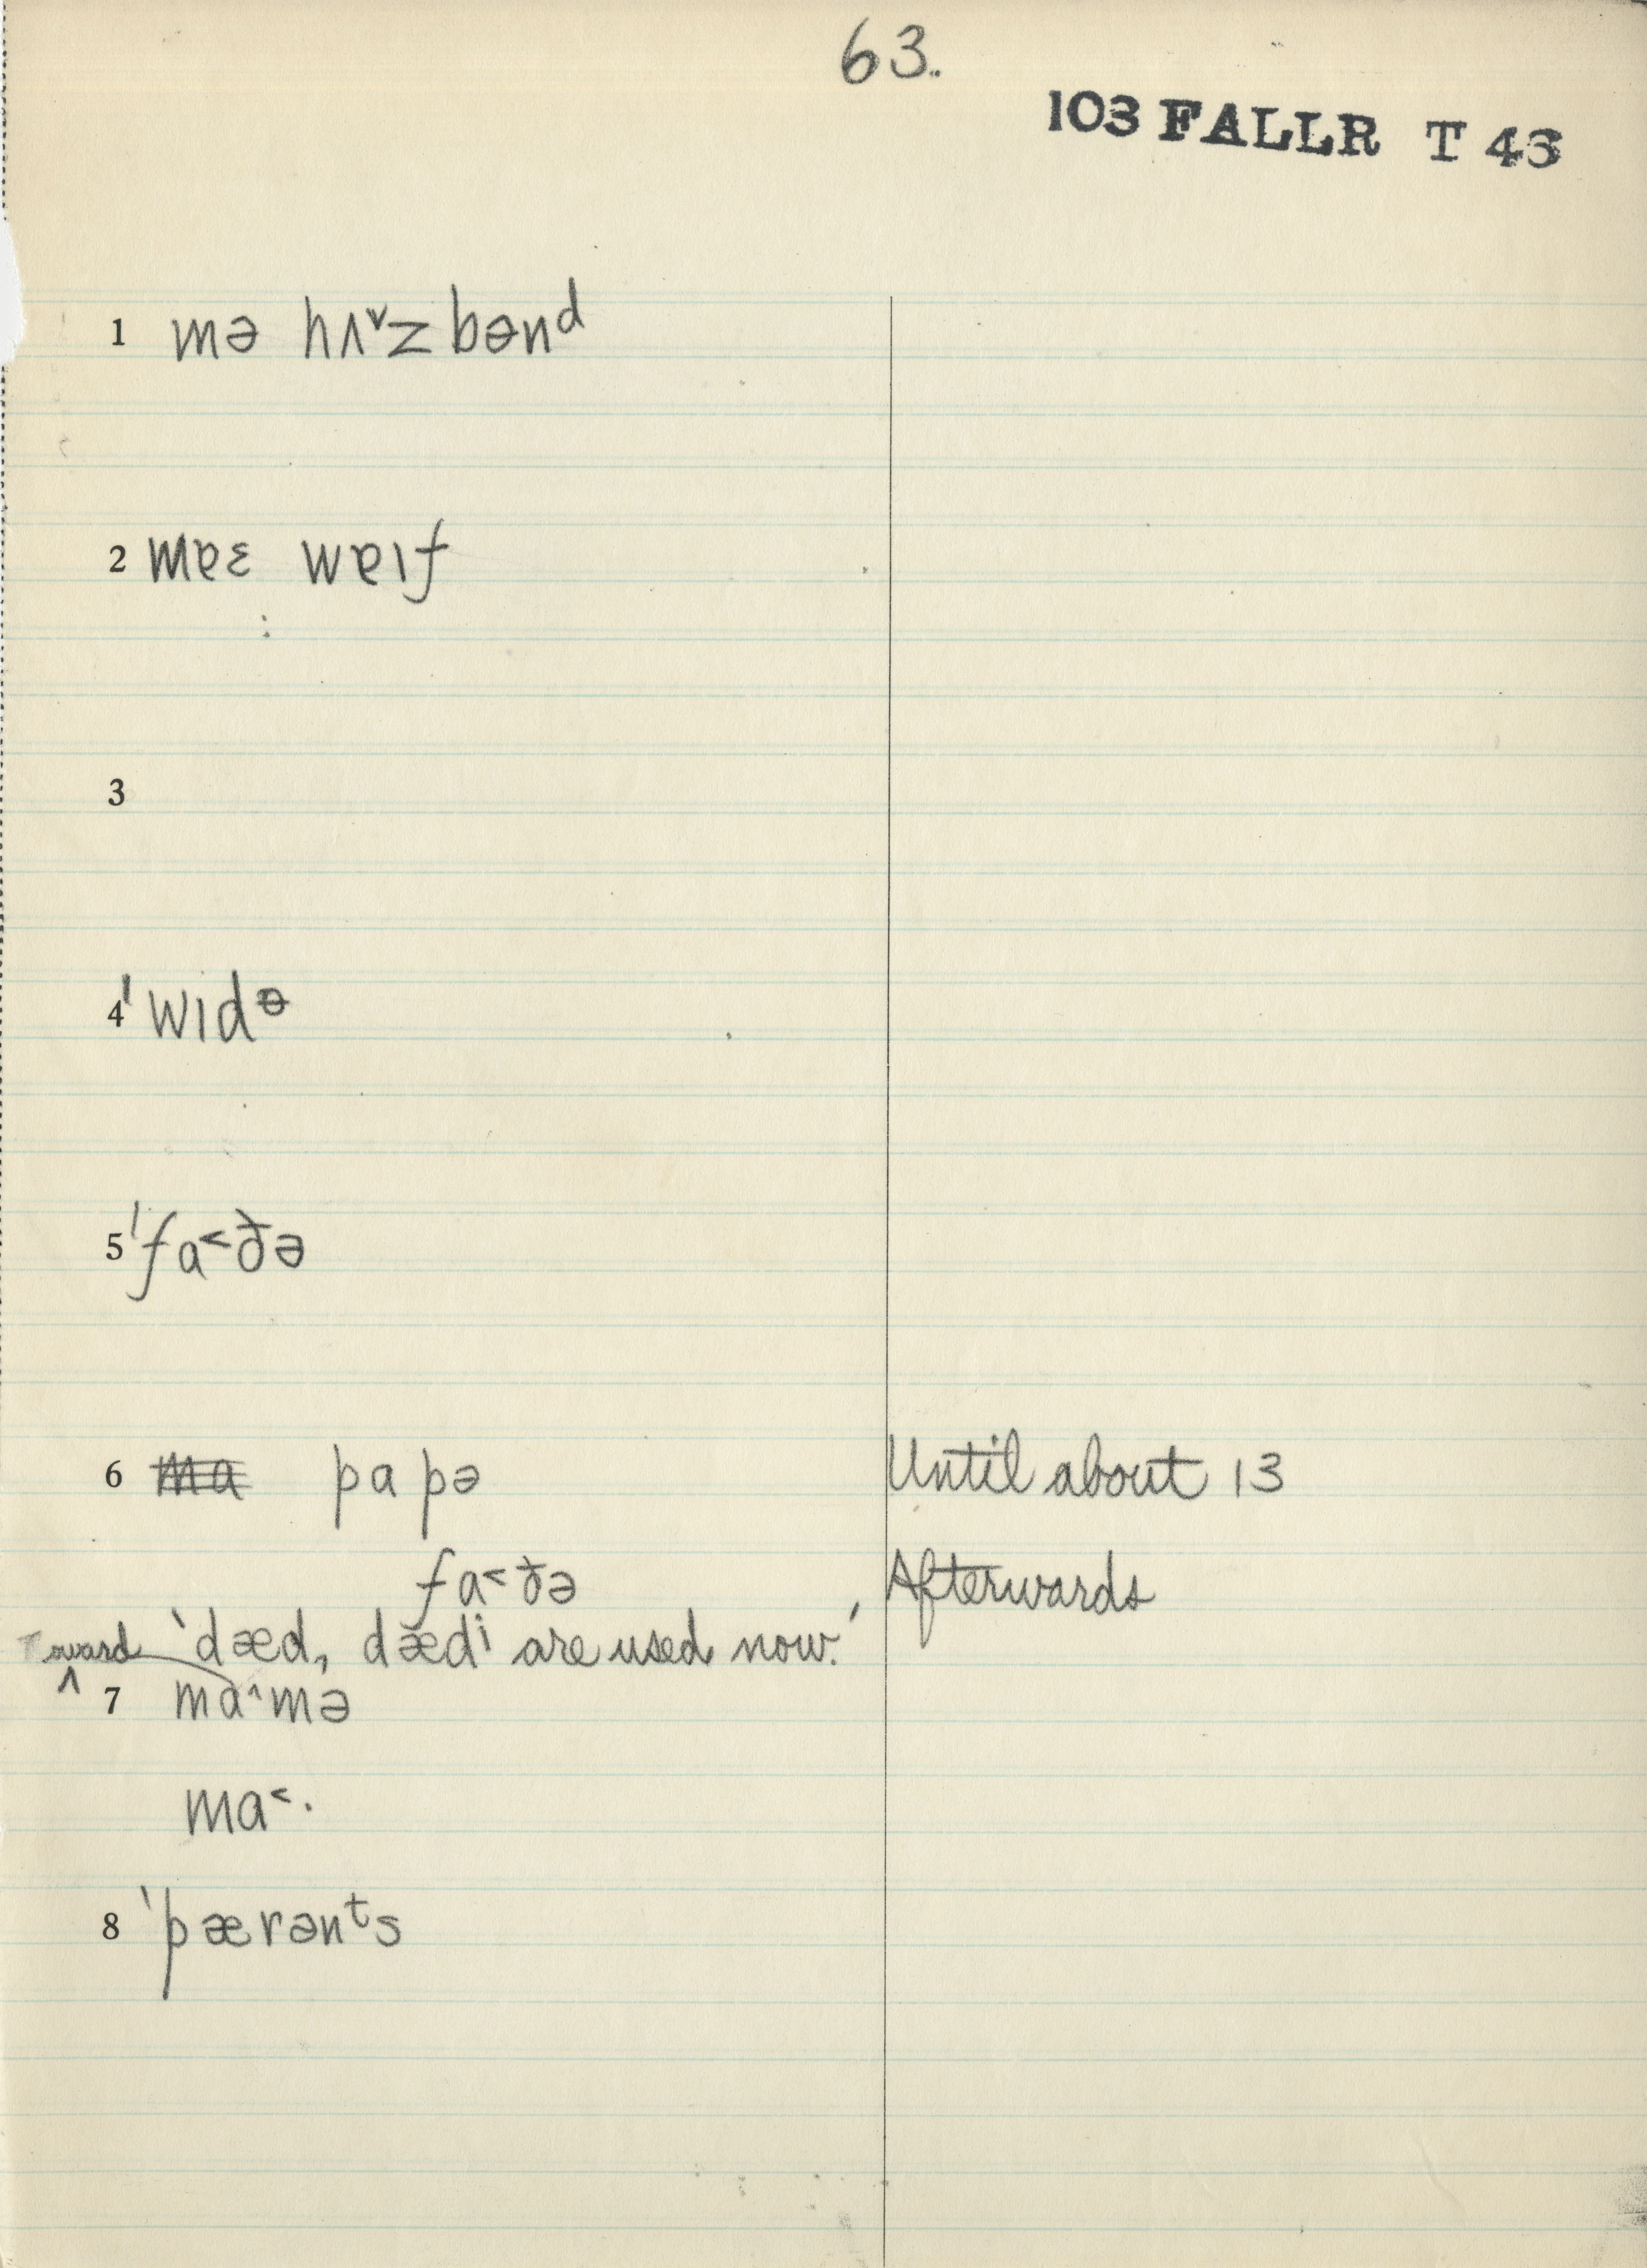 63.
103 FALLR T 43
1 mə hʌˇzbənᵈ
2 mɐɛ wɐɪf
3
4 ˈwɪdᶿ
5 ˈfa˂ðə
6 ma papə Until about 13
fa˂ðə Afterwards
'dæd, dædⁱ are used now.'
Toward ^
7 ma^mə
ma˂·
8 ˈpærənᵗs